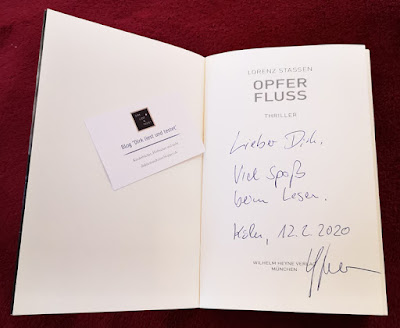 Blog "Dirk liest und testet"
LORENZ STASSEN
OPFER
FLUSS
THRILLER
Lieber Dirk,
Viel Spaß
beim Lesen.
Köln, 12.2.2020
WILHELM HEYNE VERLAG
MÜNCHEN